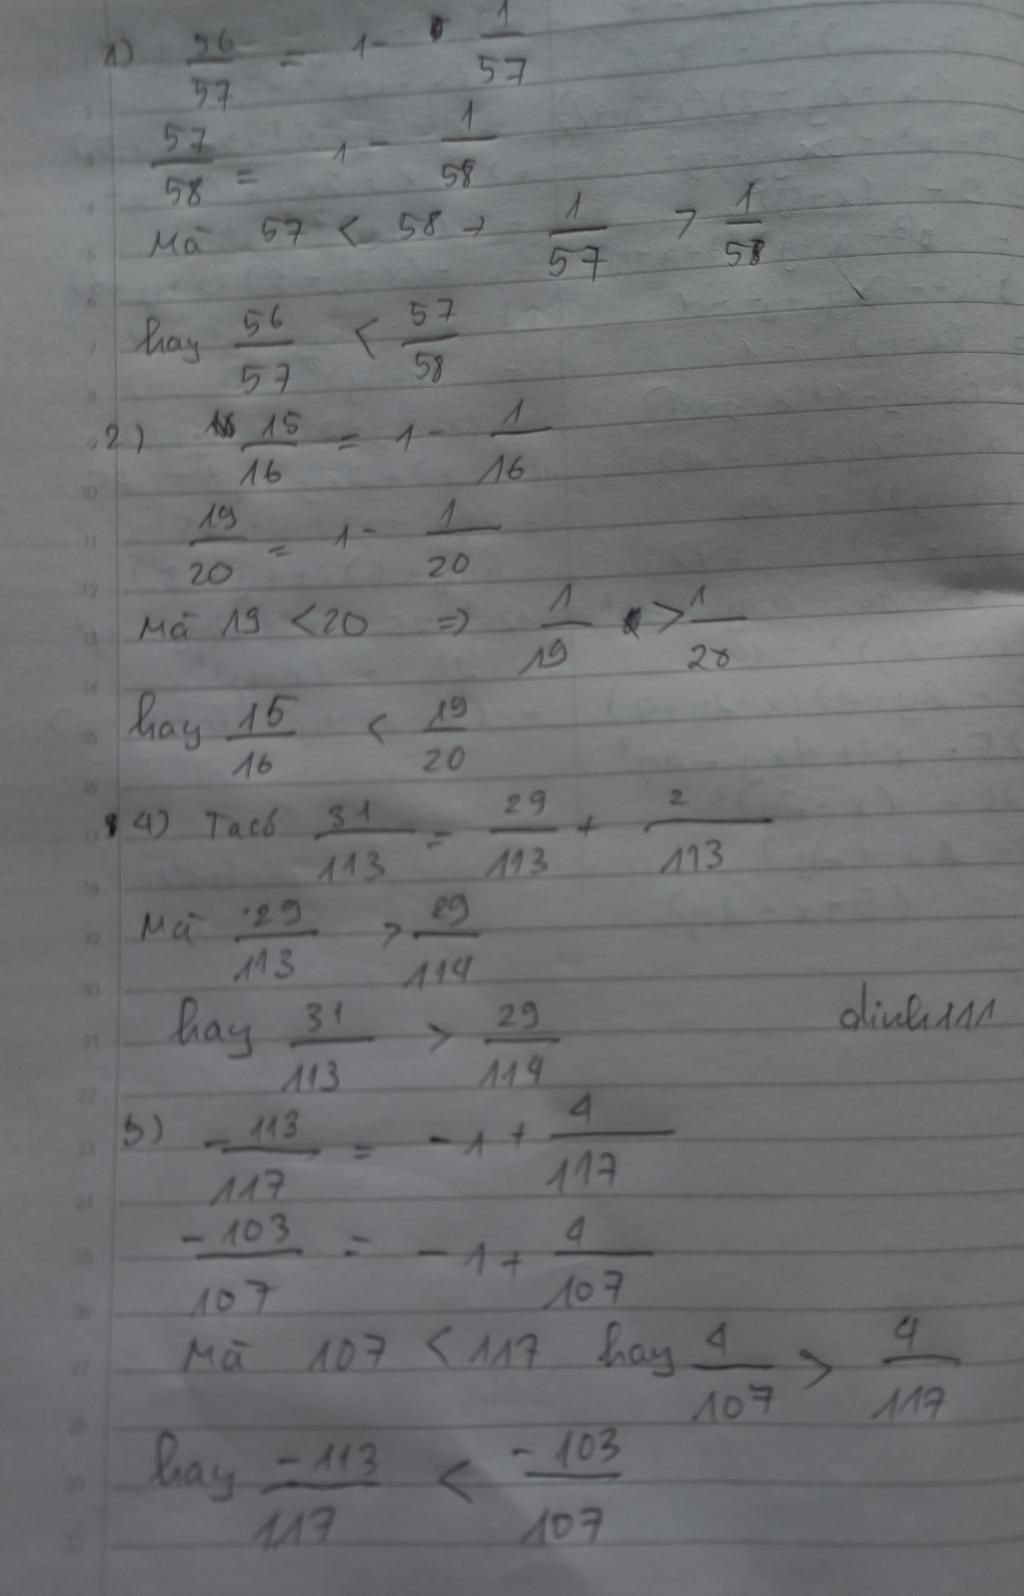 1) 56/57 = 1 - 1/57
57/58 = 1 - 1/58
Mà 57 < 58 → 1/57 > 1/58
hay 56/57 < 57/58
2) 15/16 = 1 - 1/16
19/20 = 1 - 1/20
Mà 19 < 20 => 1/19 > 1/20
hay 15/16 < 19/20
4) Ta có 31/113 = 29/113 + 2/113
Mà 29/113 > 29/114
hay 31/113 > 29/114
dinh111
5) -113/117 = -1 + 4/117
-103/107 = -1 + 4/107
Mà 107 < 117 hay 4/107 > 4/117
hay -113/117 < -103/107